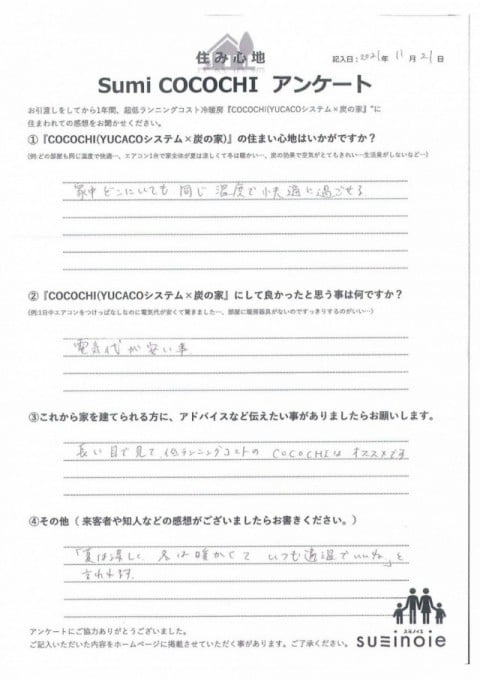 住み心地
記入日：2021年 11月 21日
Sumi COCOCHI アンケート
お引渡しをしてから1年間、超低ランニングコスト冷暖房『COCOCHI(YUCACOシステム×炭の家』"に
住まわれての感想をお聞かせください。
①『COCOCHI(YUCACOシステム×炭の家)』の住まい心地はいかがですか？
(例:どの部屋も同じ温度で快適…、エアコン1台で家全体が夏は涼しくて冬は暖かい…、炭の効果で空気がとてもきれい…生活臭がしないなど…)
家中どこにいても 同じ 温度で快適に過ごせる
②『COCOCHI(YUCACOシステム×炭の家』にして良かったと思う事は何ですか？
(例:1日中エアコンをつけっぱなしなのに電気代が安くて驚きました…、部屋に暖房器具がないのですっきりするのがいい…)
電気代が安い事
③これから家を建てられる方に、アドバイスなど伝えたい事がありましたらお願いします。
長い目で見て、低ランニングコストの COCOCHIは オススメです
④その他（ 来客者や知人などの感想がございましたらお書きください。）
「夏は涼しく、冬は暖かくて いつも適温でいいね」と
言われます。
アンケートにご協力ありがとうございました。
ご記入いただいた内容をホームページに掲載させていただく事があります。ご了承ください。
スミノイエ
suminoie